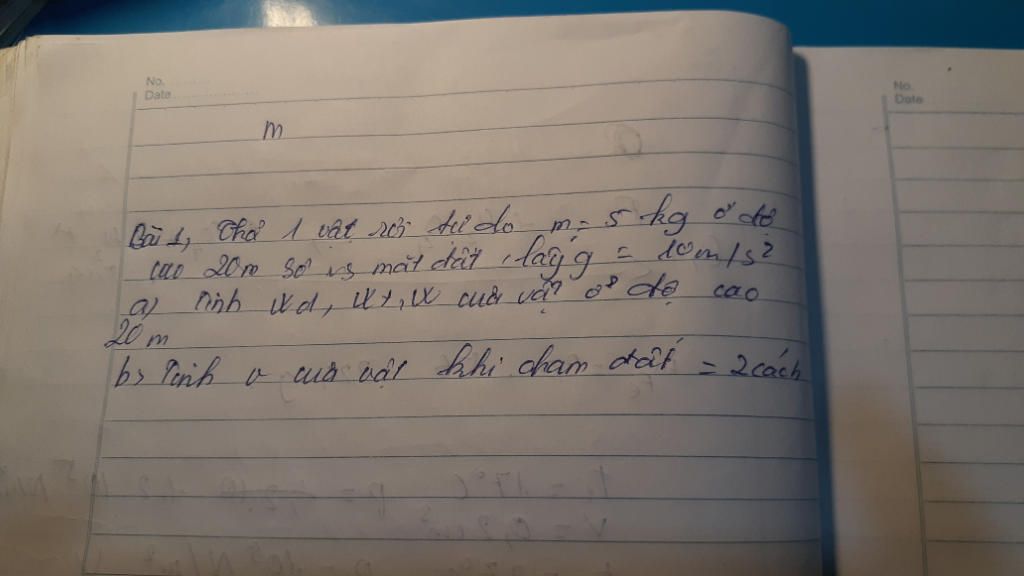 No.
Date
m
Bài 1, Thả 1 vật rơi tự do m = 5 kg ở độ
cao 20m so vs mặt đất, lấy g = 10m/s²
a) Tính Wđ, Wt, W của vật ở độ cao
20m
b) Tính v của vật khi chạm đất = 2 cách
No.
Date